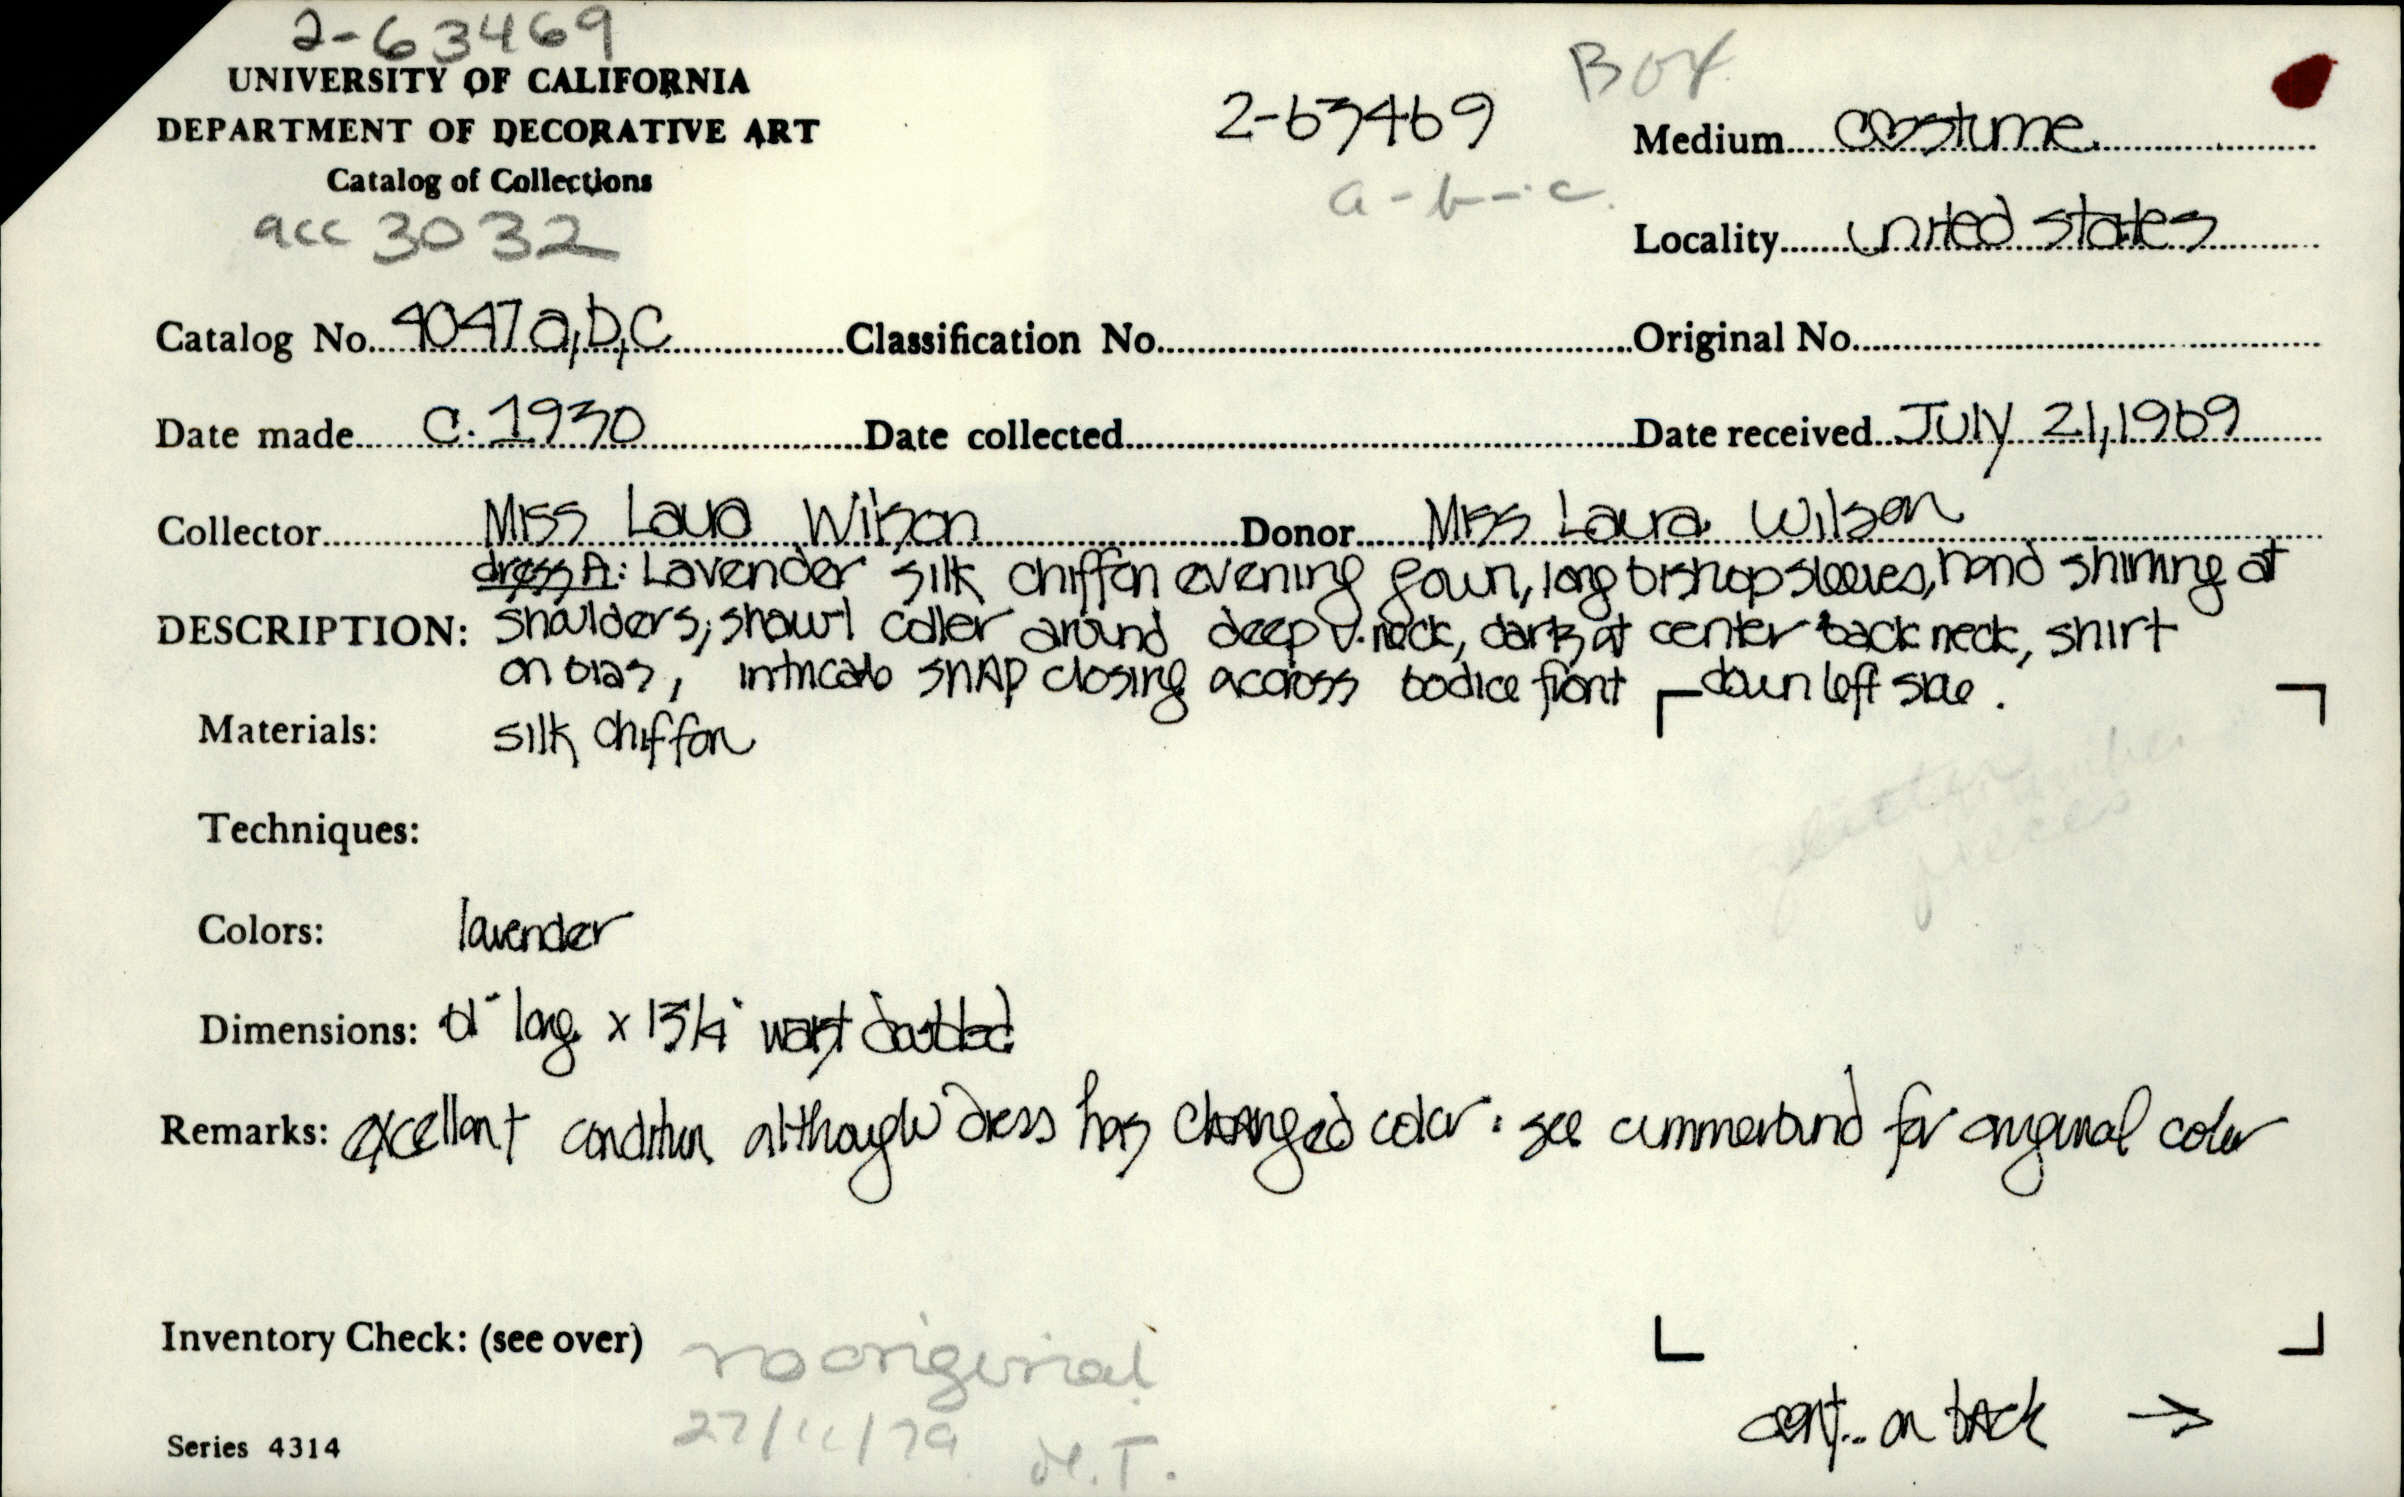 2-63469
UNIVERSITY OF CALIFORNIA
DEPARTMENT OF DECORATIVE ART
Catalog of Collections
acc 3032
2-63469
a-b-c.
Box
Medium costume
Locality United States
Catalog No. 4047 a,b,c Classification No. Original No.
Date made c. 1930 Date collected Date received July 21, 1969
Collector Miss Laura Wilson Donor Miss Laura Wilson
dress A: Lavender silk chiffon evening gown, long bishop sleeves, hand shirring at
DESCRIPTION: shoulders; shawl coller around deep v-neck, darts at center back neck, skirt
on bias, intricate snap closing accross bodice front down left side.
Materials: silk chiffon
Techniques:
Colors: lavender
Dimensions: long x 13 1/4" waist doubled
Remarks: excellant condition although dress has changed color: see cummerbund for original color
pieces
Inventory Check: (see over) no original
27/11/79 M.T.
Series 4314
cont.. on back →